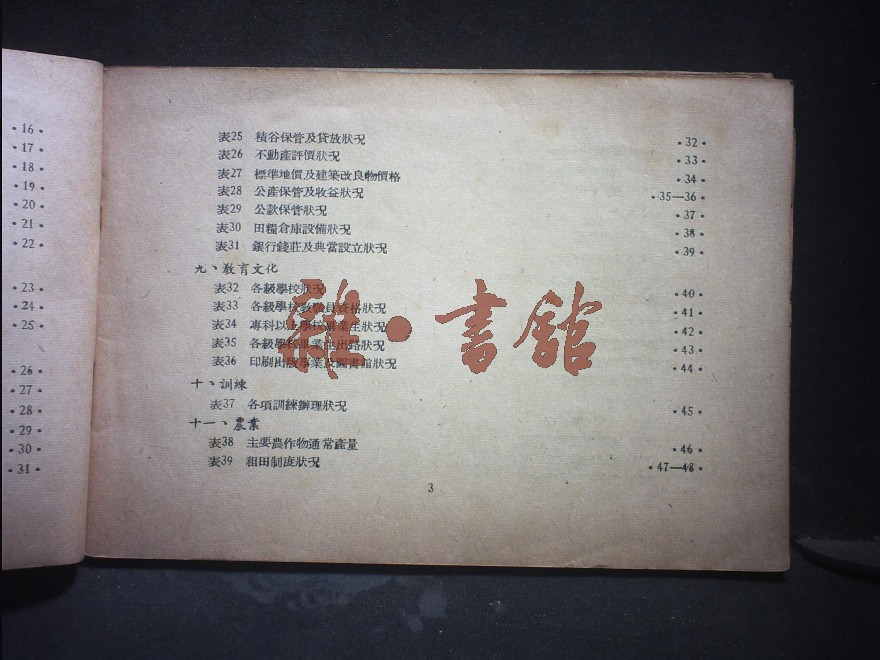 ·16·
·17·
·18·
·19·
·20·
·21·
·22·
·23·
·24·
·25·
·26·
·27·
·28·
·29·
·30·
·31·
表25 積谷保管及貸放狀況 ·32·
表26 不動產評價狀況 ·33·
表27 標準地價及建築改良物價格 ·34·
表28 公產保管及收益狀況 ·35—36·
表29 公款保管狀況 ·37·
表30 田糧倉庫設備狀況 ·38·
表31 銀行錢莊及典當設立狀況 ·39·
九、教育文化
表32 各級學校狀況 ·40·
表33 各級學校教職員資格狀況 ·41·
表34 專科以上學校畢業生狀況 ·42·
表35 各級學校畢業生出路狀況 ·43·
表36 印刷出版事業及圖書館狀況 ·44·
十、訓練
表37 各項訓練辦理狀況 ·45·
十一、農業
表38 主要農作物通常產量 ·46·
表39 租田制度狀況 ·47—48·
3
雜·書館